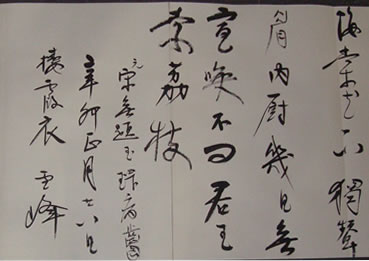 海棠花下獨顰
眉內廚幾日無
宣喚不向君王
索荔枝
元宋無題玉環病齒
辛卯正月十八日
棲霞衣峰